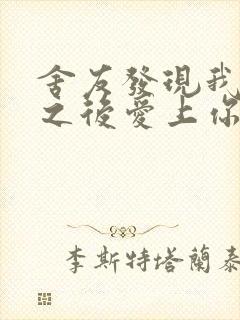 舍友發現我
之後愛上你
李斯特塔蘭泰